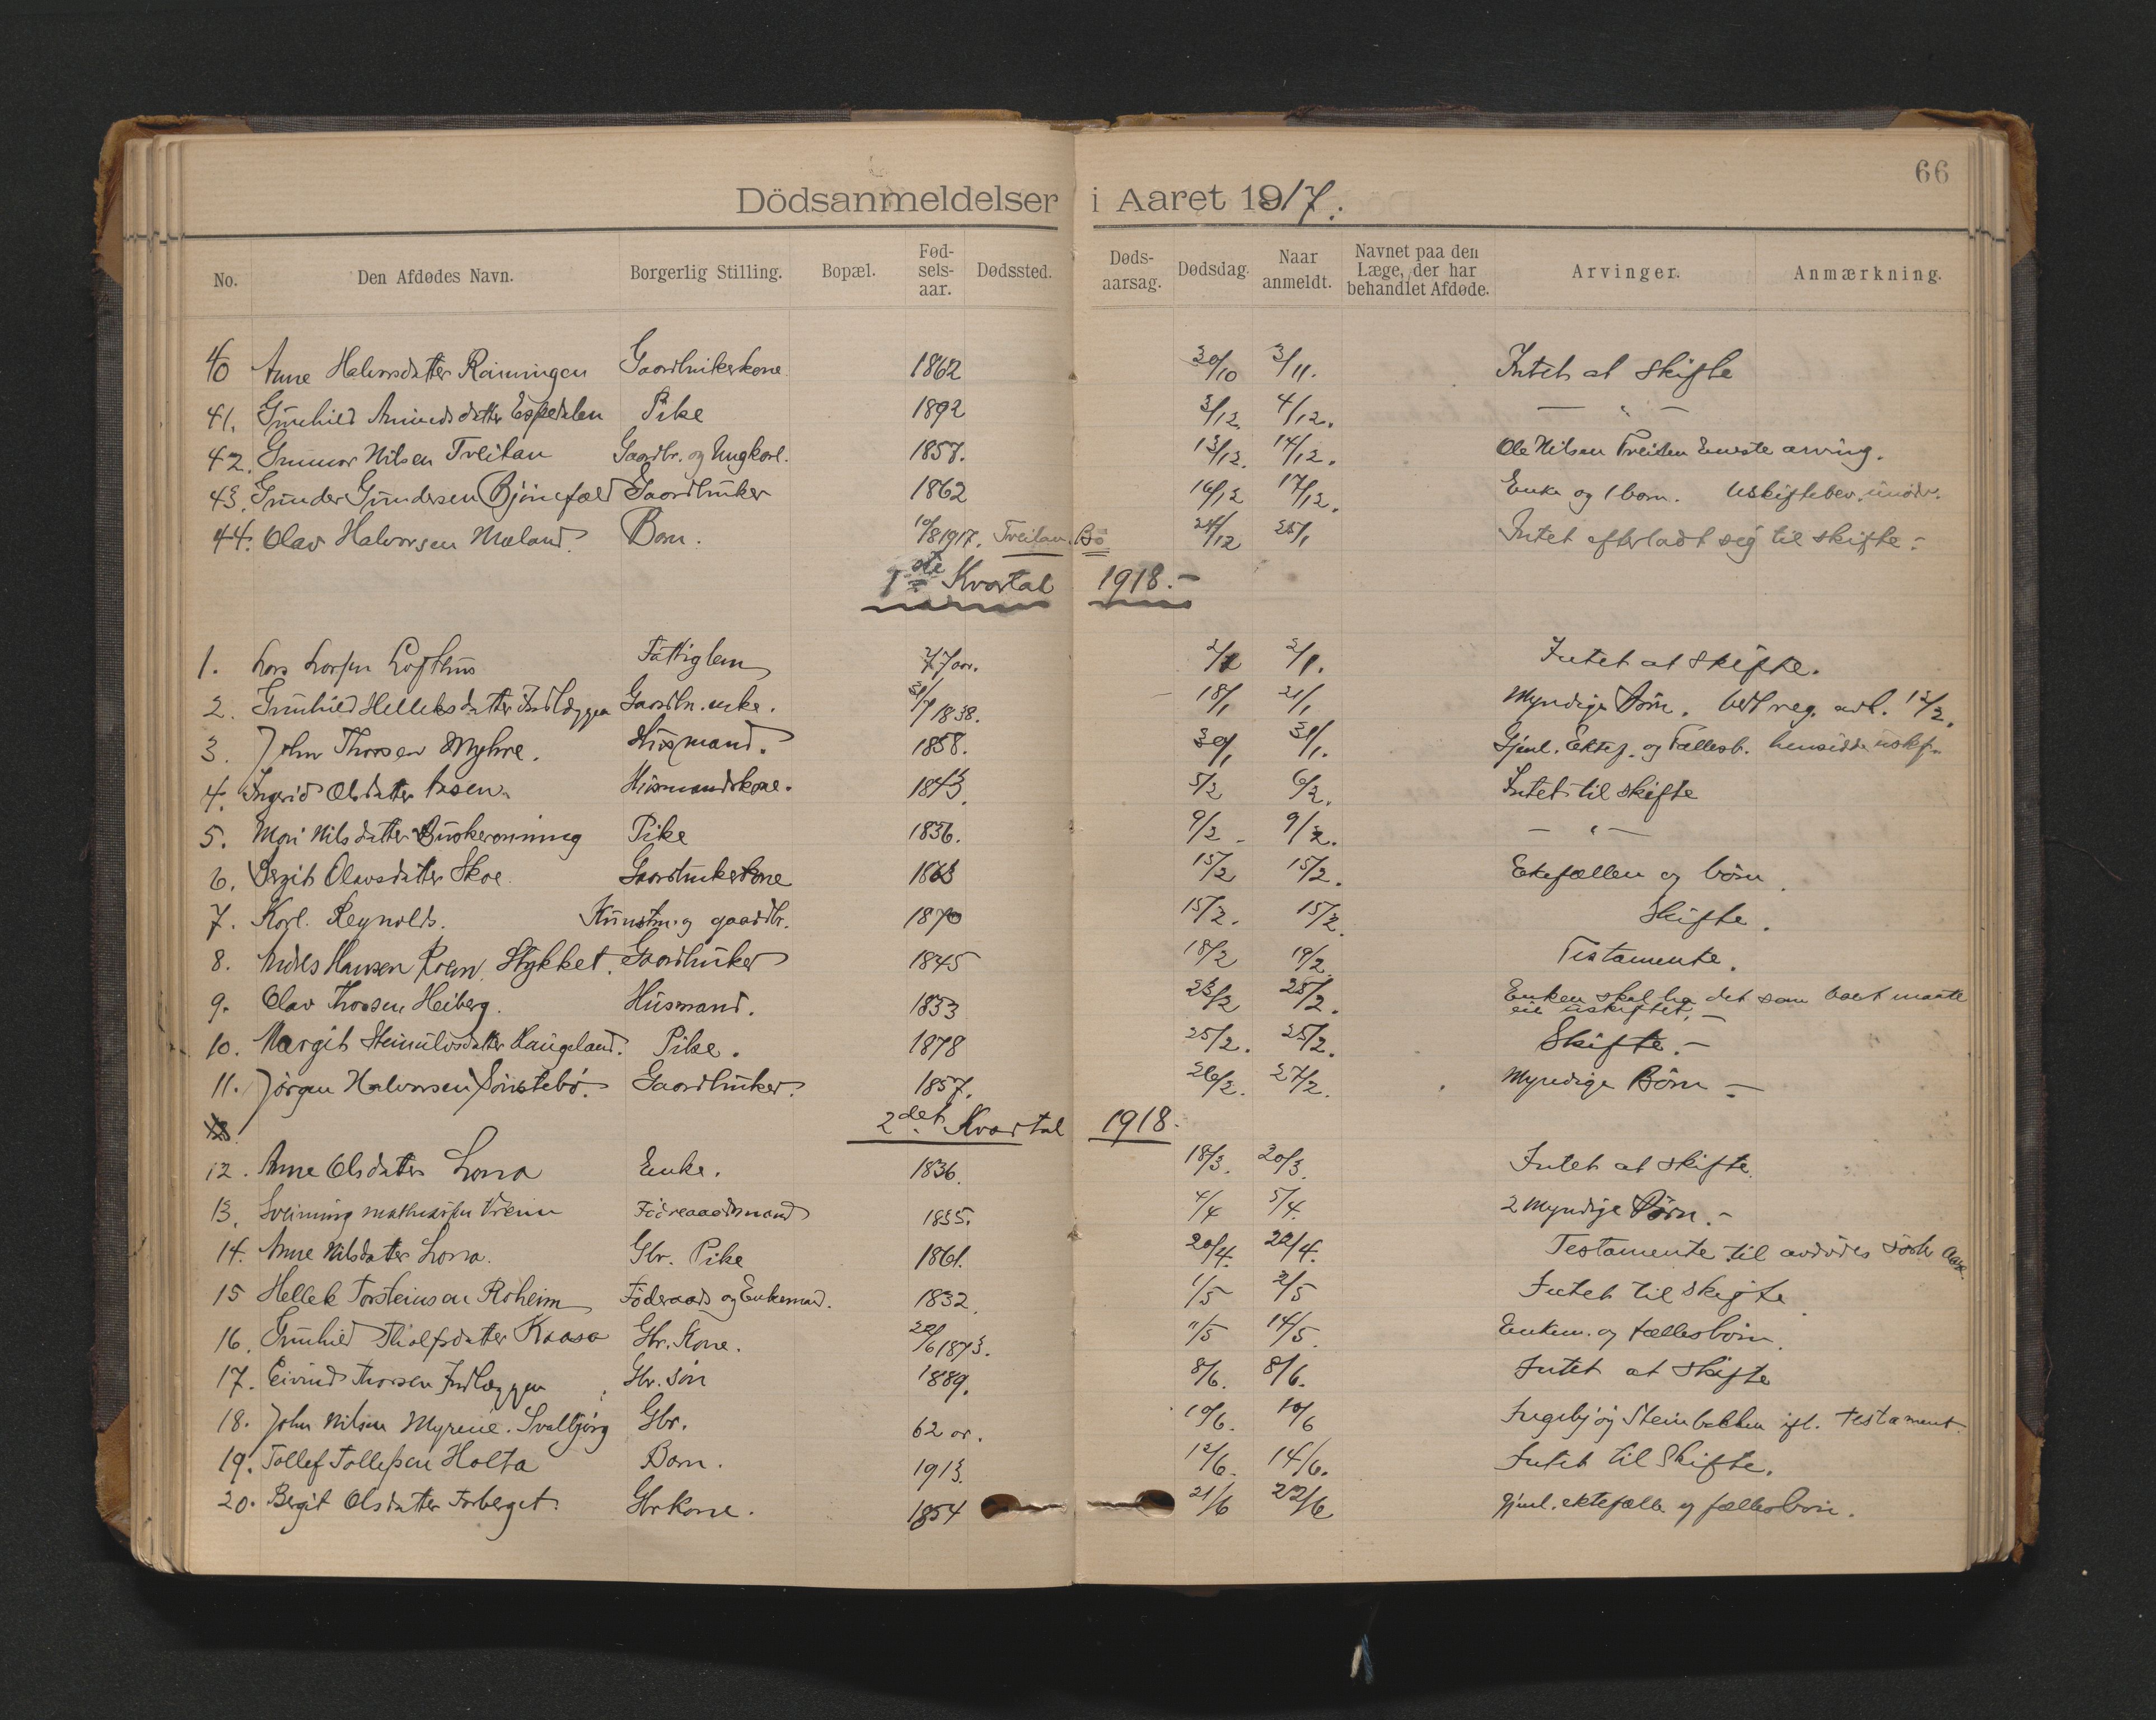 66
Dödsanmeldelser i Aaret 1917.
No. Den Afdødes Navn. Borgerlig Stilling. Bopæl. Fødselsaar. Dødssted. Dødsaarsag. Dødsdag. Naar anmeldt. Navnet paa den Læge, der har behandlet Afdøde. Arvinger. Anmærkning.
40 Anne Halvorsdatter Gaardbrukerkone 1862 30/10 3/11. Intet at skifte
41. Gunhild Amundsdatter Espedalen Pike 1892 3/12. 4/12. — " —
42. Gunnar Nilsen Treitan Gaardbr. og Ungkarl. 1857. 13/12. 14/12. Ole Nilsen Treitan Eneste arving.
43. Gunder Gundersen Gaardbruker 1862 16/12 17/12. Enke og 1 barn. Uskiftebev.
44. Olav Halvorsen Mæland. Barn. 10/8 1917. Treitan. Bø 24/12 25/1 Intet efterladt sig til skifte.-
1ste Kvartal 1918.-
1. Lars Larsen Lofthus Fattiglem 77 aar. 2/1 2/1. Intet at skifte.
2. Gunhild Helleksdatter Indlæggen Gaardbr. enke. 31/7 1838. 18/1 21/1 Myndige Børn. 12/2.
3. John Thorsen Myhre. Husmand. 1858. 30/1 31/1. Gjenl. Ektef. og Fællesb.
4. Ingerid Olsdatter Aasen. Husmandskone. 1843. 5/2 6/2. Intet til skifte
5. Mari Nilsdatter Pike 1836. 9/2. 9/2. — " —
6. Bergit Olavsdatter Skoe. Gaardbrukerkone 1863 15/2 15/2. Ektefællen og børn.
7. Karl Reynolds. Kunstm. og gaardbr. 1870 15/2. 15/2. Skifte.
8. Hansen Stykket. Gaardbruker 1845 18/2 19/2. Testamente.
9. Olav Thorsen Heiberg. Husmand. 1833 23/2 25/2. Enken skal ha det som boet maatte
eie uskiftet.—
10. Margit Steinulvsdatter Haugeland. Pike. 1878 25/2. 25/2. Skifte.—
11. Jørgen Halvorsen Sønstebø. Gaardbruker. 1857. 26/2. 27/2. Myndige Børn —
2det Kvartal 1918.
12. Anne Olsdatter Lona Enke. 1836. 18/3. 20/3. Intet at skifte.
13. Sveinung Føderaadsmand 1835. 4/4 5/4. 2 Myndige Børn.-
14. Anne Nilsdatter Lona. Gbr. Pike 1861. 20/4. 22/4. Testamente til avdødes
15 Hellek Torsteinsen Roheim Føderaads og Enkemand. 1832. 1/5 2/5 Intet til skifte
16. Gunhild Kaasa Gbr. Kone. 20/6 1873. 11/5 14/5. Enkem. og fællesbørn.
17. Eivind Thorsen Indlæggen Gbr. søn 1889. 8/6. 8/6. Intet at skifte
18. John Nilsen Myrene. Svalbjørg Gbr. 62 ar. 10/6. 10/6 Ingebjørg Steinbakken ifl. Testament.
19. Tollef Tollefsen Holta Barn. 1913. 12/6. 14/6. Intet til Skifte.
20. Bergit Olsdatter Forberget. Gbrkone. 1854 21/6 22/6 gjenl. ektefælle og fællesbørn.